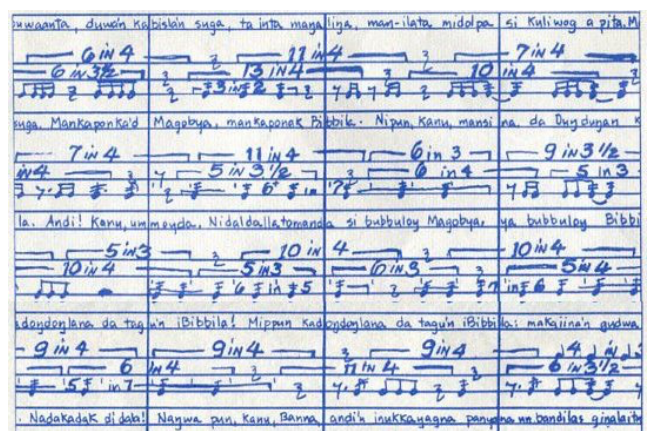 duwan kabislan suga, ta inta mana lina, man-ilata midolpa si Kuliwog a pita. M
6 in 4 11 in 4 7 in 4
6 in 3½ 13 in 4 10 in 4
3 in 2
suga. Mankaponka'd Magobya, mankaponak Bibbik. Nipun, Kanu, mansi na, da
7 in 4 11 in 4 6 in 3 9 in 3½
in 4 5 in 3½ 6 in 4 5 in 3
6 in 7
la. Andi! Kanu, Nidaldallatomanda si bubbuloy Magobya, ya bubbuloy Bibbi
5 in 3 10 in 4 10 in 4
10 in 4 5 in 3 6 in 3 5 in 4
6 in 5 7 in 6
da tagu'n iBibbila! Mippun da tagu'n iBibbila: makaiina'n gudwa
9 in 4 9 in 4 9 in 4 4 in
6 in 4 11 in 4 6 in 3½
5 in 7
. Nadakadak di dala! Nanwa pun, Kanu, Banna, andi'n inukkayagna